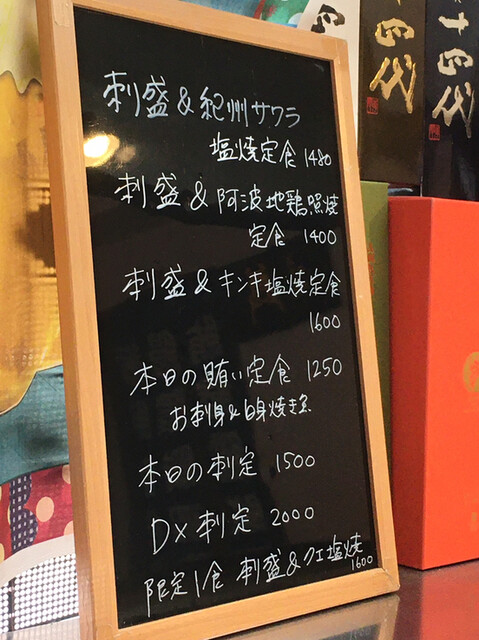 刺盛&紀州サワラ
塩焼定食 1480
刺盛&阿波地鶏照焼
定食 1400
刺盛&キンキ塩焼定食
1600
本日の賄い定食 1250
お刺身&白身焼き魚
本日の刺定 1500
DX刺定 2000
限定1食 刺盛&クエ塩焼
1600
十四代
十四代